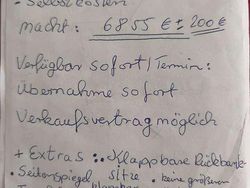 - Selbstkosten
macht: 6855 € ± 200 €
Verfügbar sofort / Termin:
Übernahme sofort
Verkaufsvertrag möglich
+ Extras :. Klappbare Rückbank
• Seitenspiegel sitze • keine größeren